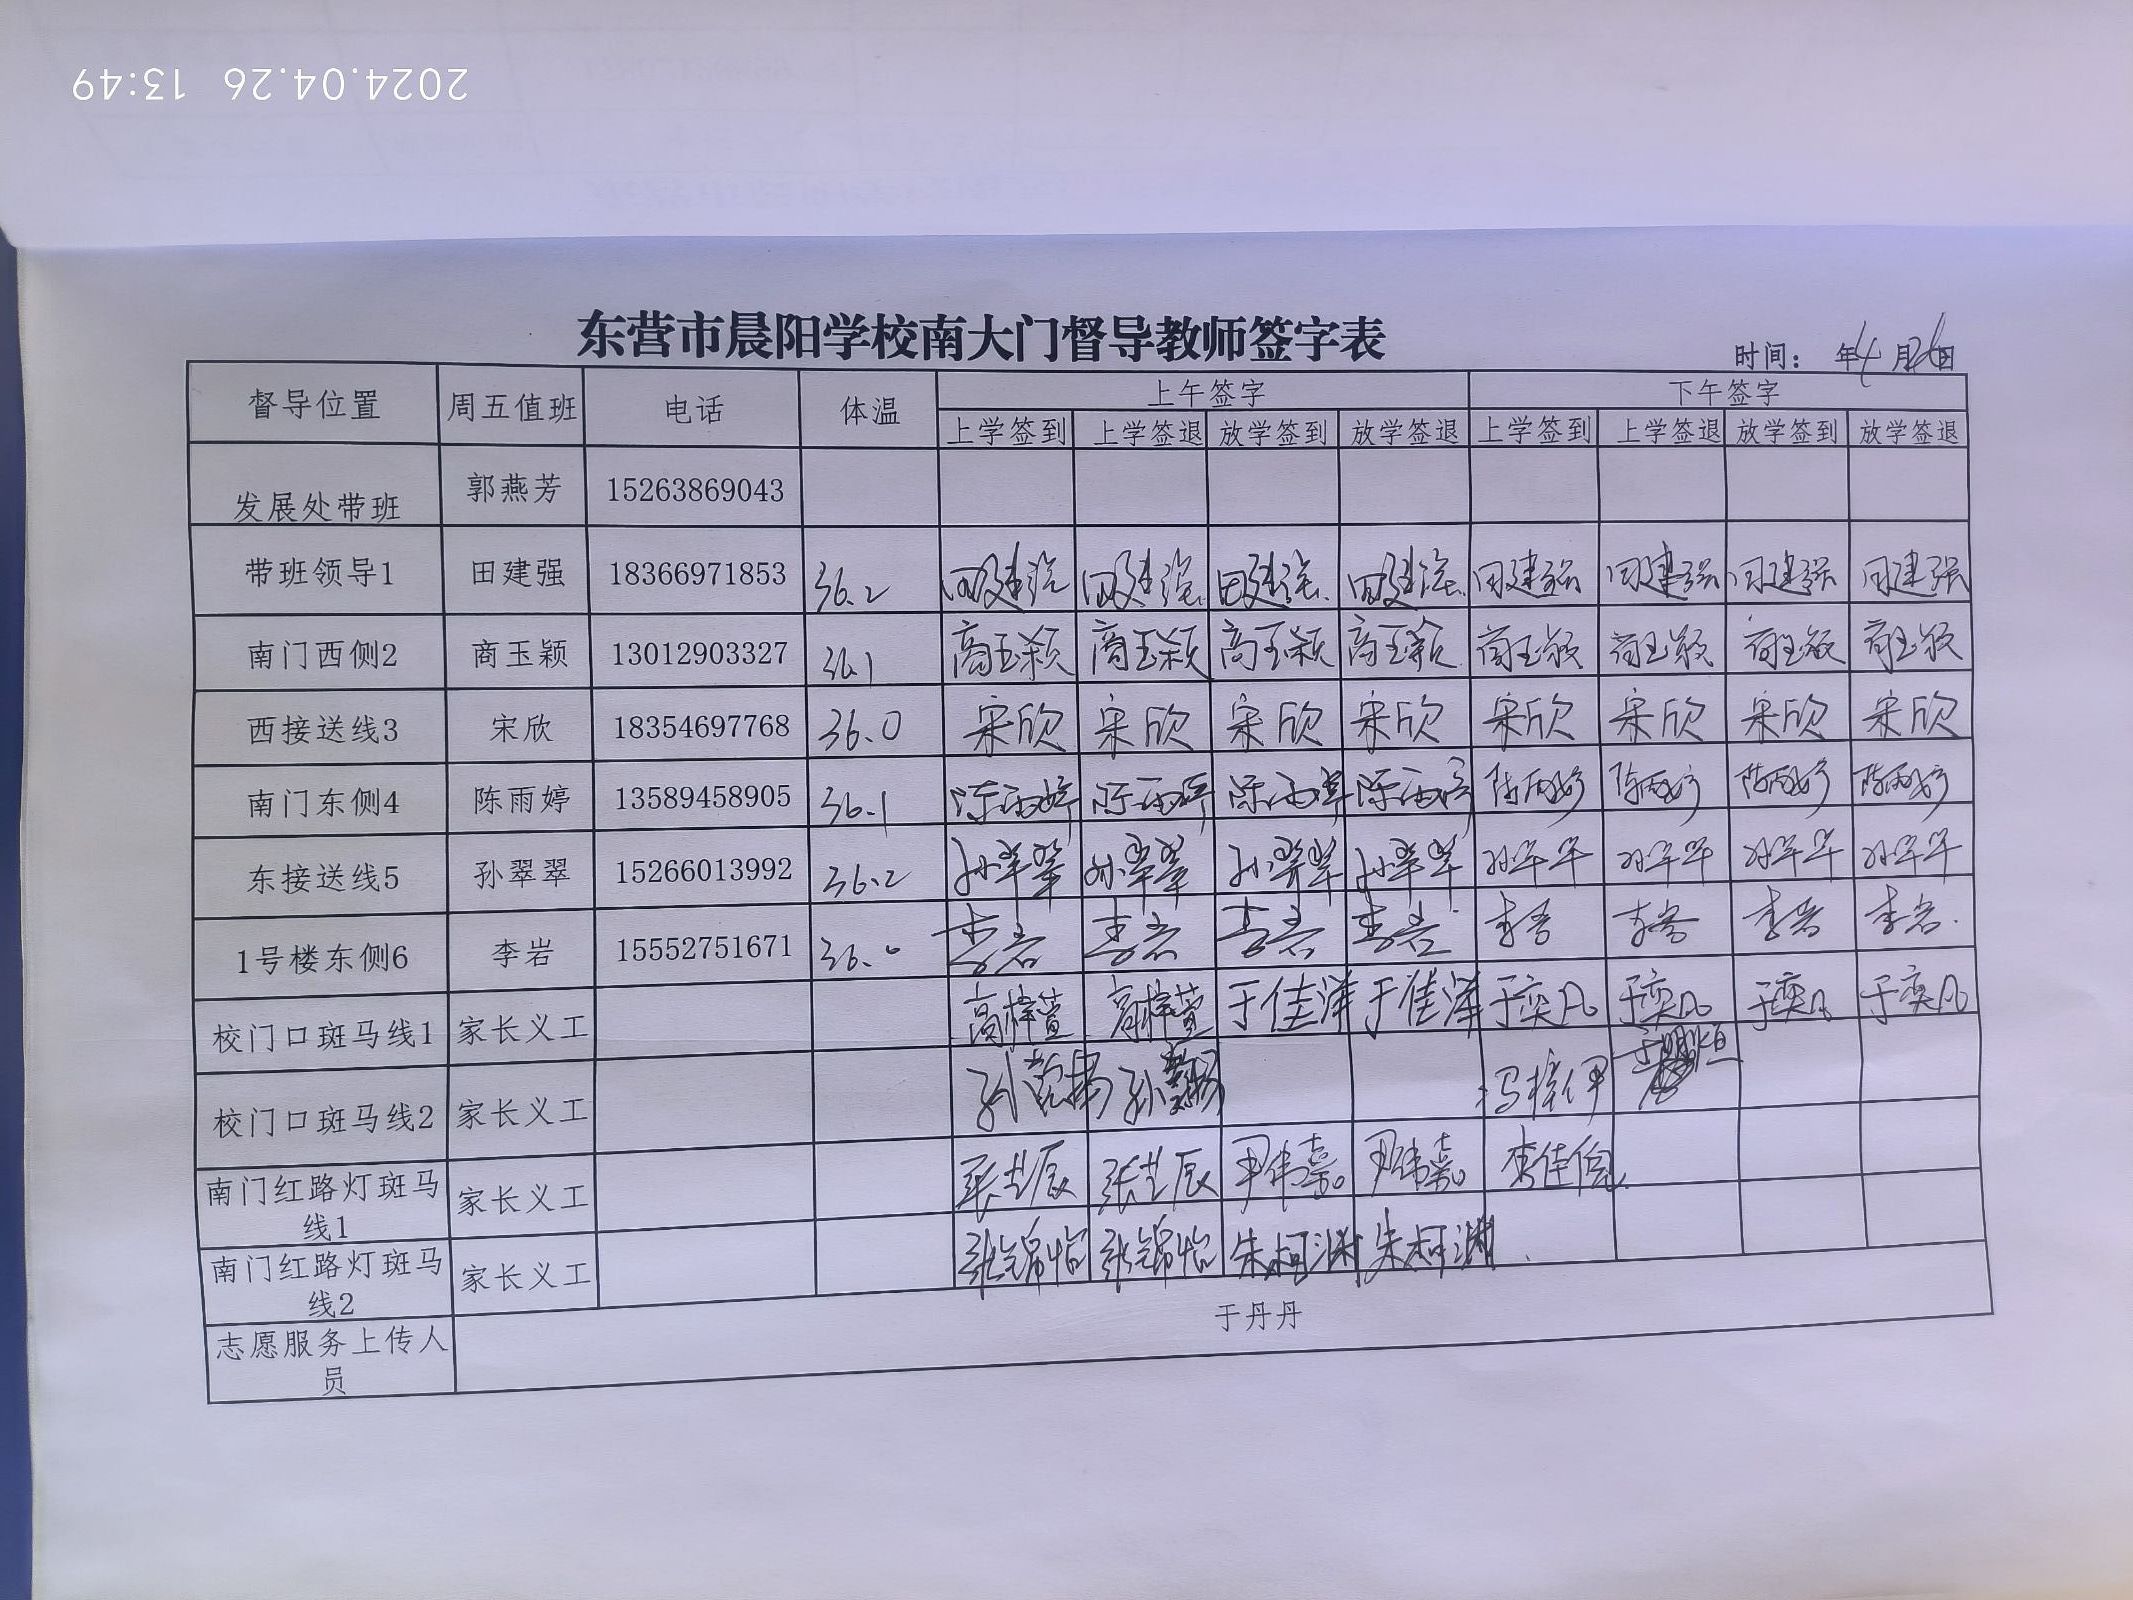 2024.04.26 13:49
东营市晨阳学校南大门督导教师签字表
时间： 年4月26日
督导位置 周五值班 电话 体温 上午签字 下午签字
上学签到 上学签退 放学签到 放学签退 上学签到 上学签退 放学签到 放学签退
发展处带班 郭燕芳 15263869043
带班领导1 田建强 18366971853 36.2 田建强 田建强 田建强 田建强 田建强 田建强 田建强 田建强
南门西侧2 商玉颖 13012903327 36.1 商玉颖 商玉颖 商玉颖 商玉颖 商玉颖 商玉颖 商玉颖 商玉颖
西接送线3 宋欣 18354697768 36.0 宋欣 宋欣 宋欣 宋欣 宋欣 宋欣 宋欣 宋欣
南门东侧4 陈雨婷 13589458905 36.1 陈雨婷 陈雨婷 陈雨婷 陈雨婷 陈雨婷 陈雨婷 陈雨婷 陈雨婷
东接送线5 孙翠翠 15266013992 36.2 孙翠翠 孙翠翠 孙翠翠 孙翠翠 孙翠翠 孙翠翠 孙翠翠 孙翠翠
1号楼东侧6 李岩 15552751671 36.0 李岩 李岩 李岩 李岩 李岩 李岩 李岩 李岩
校门口斑马线1 家长义工 高梓萱 高梓萱 于佳洋 于佳洋 于奕凡 于奕凡 于奕凡 于奕凡
校门口斑马线2 家长义工 马梓伊
南门红路灯斑马
线1 家长义工 尹伟嘉 尹伟嘉
南门红路灯斑马
线2 家长义工 张锦怡 张锦怡 朱柯渊 朱柯渊
志愿服务上传人
员 于丹丹